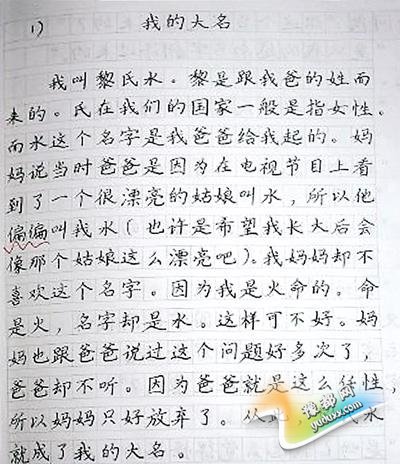 1) 我的大名
我叫黎氏水。黎是跟我爸的姓而
来的。氏在我们的国家一般是指女性。
而水这个名字是我爸爸给我起的。妈
妈说当时爸爸是因为在电视节目上看
到了一个很漂亮的姑娘叫水，所以他
偏偏叫我水(也许是希望我长大后会
像那个姑娘这么漂亮吧)。我妈妈却不
喜欢这个名字。因为我是火命的。命
是火，名字却是水。这样可不好。妈
妈也跟爸爸说过这个问题好多次了，
爸爸却不听。因为爸爸就是这么任性，
所以妈妈只好放弃了。从此，水
就成了我的大名。